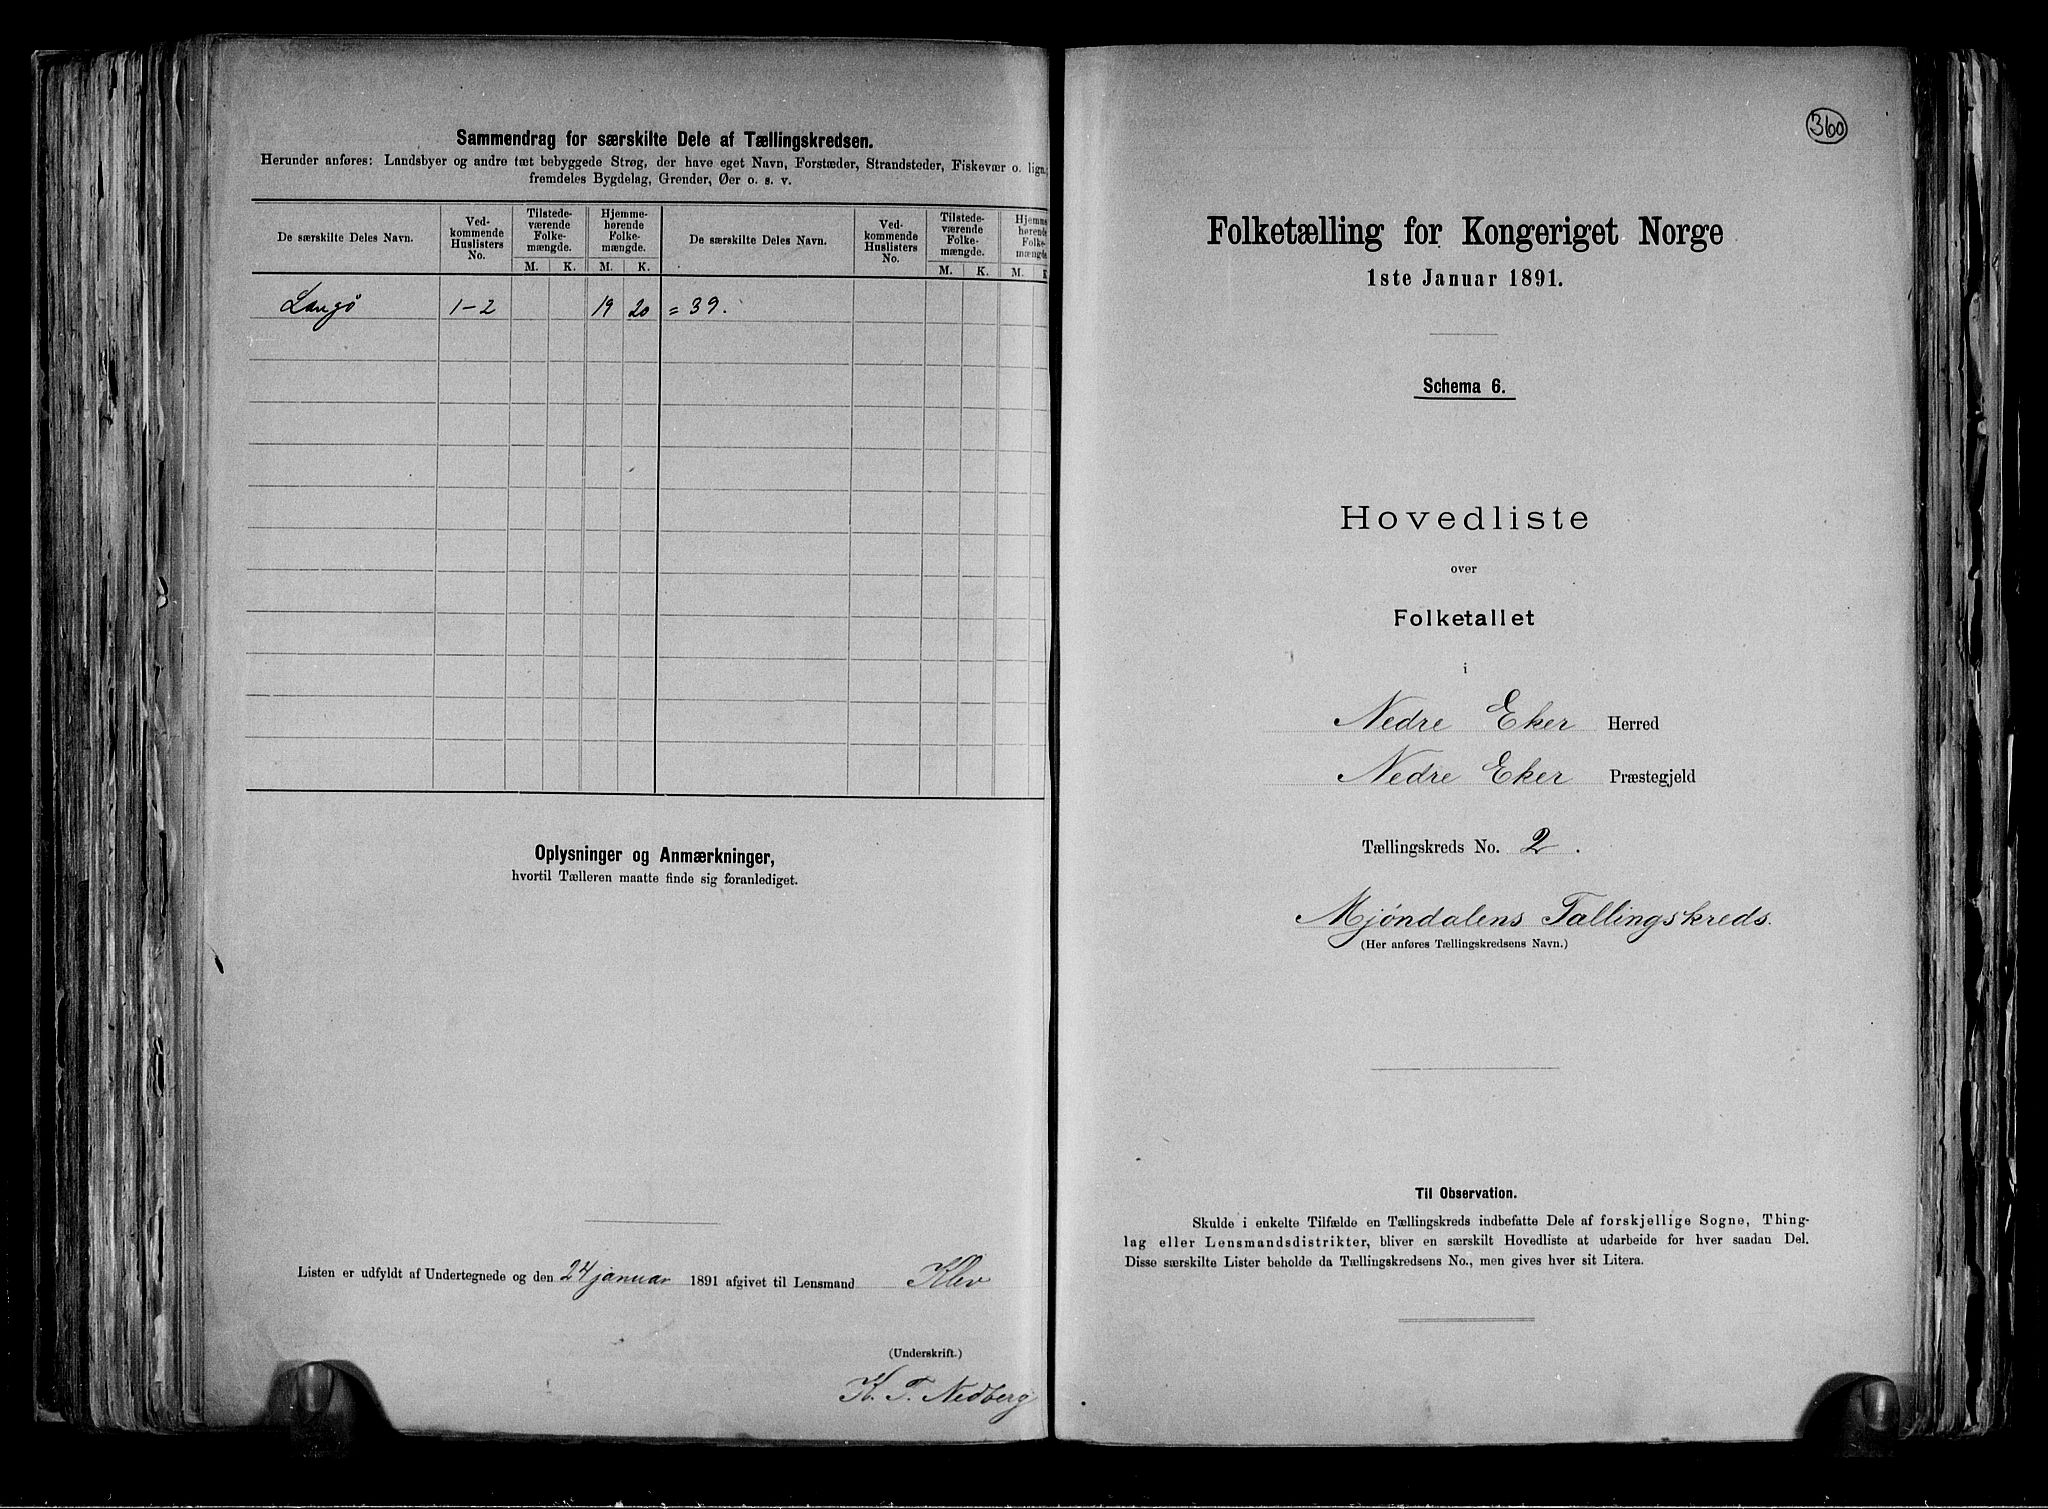 Sammendrag for særskilte Dele af Tællingskredsen.
Herunder anføres: Landsbyer og andre tæt bebyggede Strøg, der have eget Navn, Forstæder, Strandsteder, Fiskevær o. lign.,
fremdeles Bygdelag, Grender, Øer o. s. v.
De særskilte Deles Navn.
Ved-
kommende
Huslisters
No.
Tilstede-
værende
Folke-
mængde.
M. K.
Hjemme-
hørende
Folke-
mængde.
M. K.
De særskilte Deles Navn.
Ved-
kommende
Huslisters
No.
Tilstede-
værende
Folke-
mængde.
M. K.
Hjemme
hørende
Folke-
mængde
M. K
Langö 1-2 19 20 = 39.
Oplysninger og Anmærkninger,
hvortil Tælleren maatte finde sig foranlediget.
Listen er udfyldt af Undertegnede og den 24 januar 1891 afgivet til Lensmand Klev
(Underskrift.)
K. T. Nedberg
360
Folketælling for Kongeriget Norge
1ste Januar 1891.
Schema 6.
Hovedliste
over
Folketallet
i
Nedre Eker Herred
Nedre Eker Præstegjeld
Tællingskreds No. 2.
Mjöndalens Tallingskreds.
(Her anføres Tællingskredsens Navn.)
Til Observation.
Skulde i enkelte Tilfælde en Tællingskreds indbefatte Dele af forskjellige Sogne, Thing-
lag eller Lensmandsdistrikter, bliver en særskilt Hovedliste at udarbeide for hver saadan Del.
Disse særskilte Lister beholde da Tællingskredsens No., men gives hver sit Litera.